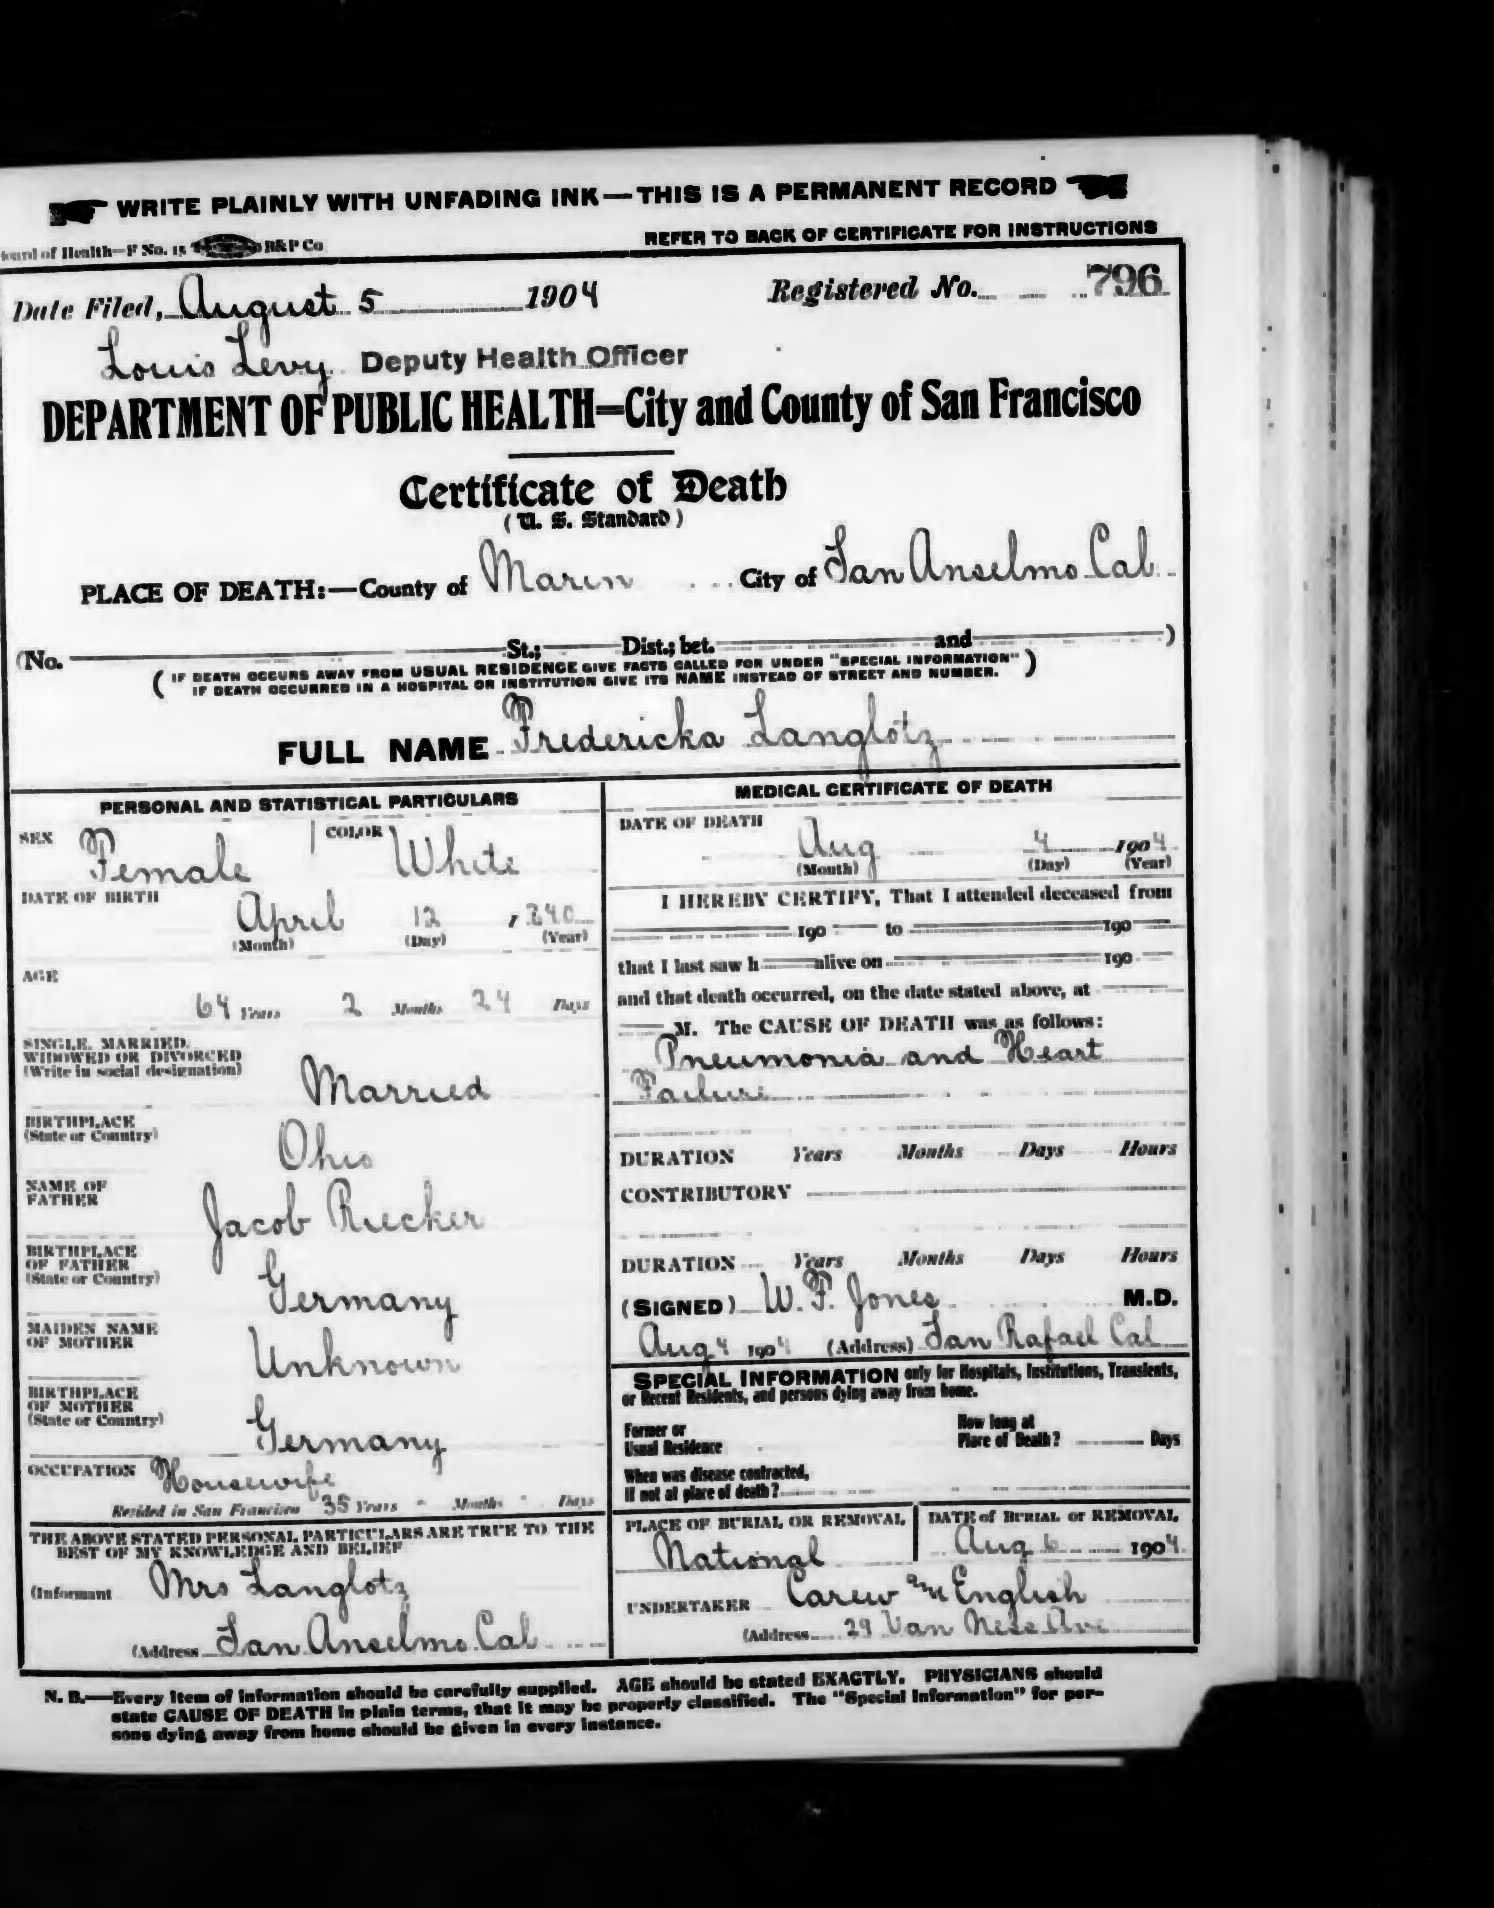 WRITE PLAINLY WITH UNFADING INK—THIS IS A PERMANENT RECORD
Board of Health—F No. 15 B&P Co
REFER TO BACK OF CERTIFICATE FOR INSTRUCTIONS
Date Filed, August 5 1904 Registered No. 796
Louis Levy Deputy Health Officer
DEPARTMENT OF PUBLIC HEALTH=City and County of San Francisco
Certificate of Death
(U. S. Standard)
PLACE OF DEATH:—County of Marin City of San Anselmo Cal
(No. St.; Dist.; bet. and )
( IF DEATH OCCURS AWAY FROM USUAL RESIDENCE GIVE FACTS CALLED FOR UNDER "SPECIAL INFORMATION" )
IF DEATH OCCURRED IN A HOSPITAL OR INSTITUTION GIVE ITS NAME INSTEAD OF STREET AND NUMBER.
FULL NAME Fredericka Langlotz
PERSONAL AND STATISTICAL PARTICULARS
SEX Female COLOR White
DATE OF BIRTH
April 12 , 840
(Month) (Day) (Year)
AGE
64 Years 2 Months 24 Days
SINGLE, MARRIED,
WIDOWED OR DIVORCED
(Write in social designation) Married
BIRTHPLACE
(State or Country) Ohio
NAME OF
FATHER Jacob Riecker
BIRTHPLACE
OF FATHER
(State or Country) Germany
MAIDEN NAME
OF MOTHER Unknown
BIRTHPLACE
OF MOTHER
(State or Country) Germany
OCCUPATION Housewife
Resided in San Francisco 35 Years - Months - Days
THE ABOVE STATED PERSONAL PARTICULARS ARE TRUE TO THE
BEST OF MY KNOWLEDGE AND BELIEF
(Informant Mrs Langlotz
(Address San Anselmo Cal
MEDICAL CERTIFICATE OF DEATH
DATE OF DEATH
Aug 4 1904
(Month) (Day) (Year)
I HEREBY CERTIFY, That I attended deceased from
190 to 190
that I last saw h alive on 190
and that death occurred, on the date stated above, at
M. The CAUSE OF DEATH was as follows:
Pneumonia and Heart
Failure
DURATION Years Months Days Hours
CONTRIBUTORY
DURATION Years Months Days Hours
(SIGNED) W. F. Jones M.D.
Aug 4 1904 (Address) San Rafael Cal
SPECIAL INFORMATION only for Hospitals, Institutions, Transients,
or Recent Residents, and persons dying away from home.
Former or
Usual Residence
How long at
Place of Death? Days
When was disease contracted,
If not at place of death?
PLACE OF BURIAL OR REMOVAL
National
DATE of BURIAL or REMOVAL
Aug 6 1904
UNDERTAKER Carew and English
(Address 29 Van Ness Ave
N. B.—Every item of information should be carefully supplied. AGE should be stated EXACTLY. PHYSICIANS should
state CAUSE OF DEATH in plain terms, that it may be properly classified. The "Special Information" for per-
sons dying away from home should be given in every instance.